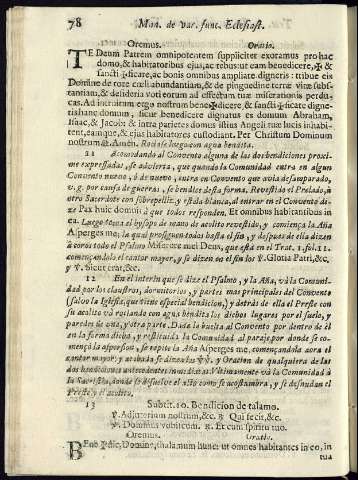 78 Man. de var. func. Eclesiast.
Oremus. Oratio.
TE Deum Patrem omnipotentem suppliciter exoramus pro hac
domo, & habitatoribus ejus, ac rebus: ut eam benedicere, ✠ &
sancti ✠ ficare, ac bonis omnibus ampliare digneris: tribue eis
Domine de rore cœli abundantiam, & de pinguedine terræ vitæ subs-
tantiam, & desideria voti eorum ad effectum tuæ miserationis perdu-
cas. Ad introitum ergo nostrum bene ✠ dicere, & sancti ✠ ficare digne-
ris hanc domum, sicut benedicere dignatus es domum Abraham,
Isaac, & Jacob: & intra parietes domus istius Angeli tuæ lucis inhabi-
tent, eamque, & ejus habitatores custodiant. Per Christum Dominum
nostrum. ℟. Amen. Rociase luego con agua bendita.
11 Acomodando al Convento alguna de las dos bendiciones proxi-
me expressadas, se advierta, que quando la Comunidad entra en algun
Convento nuevo, ò de nuevo, entra en Convento que avia desamparado,
v. g. por causa de guerras, se bendice desta forma. Revestido el Prelado, ù
otro Sacerdote con sobrepelliz, y estola blanca, al entrar en el Convento di-
ze Pax huic domui: à que todos responden. Et omnibus habitantibus in
ea. Luego toma el hysopo de mano de acolito revestido, y comiença la Aña
Asperges me, la qual prosiguen todos hasta el fin, y despues de ella dizen
à coros todo el Psalmo Miserere mei Deus, que està en el Trat. 1. fol. 12.
començandolo el cantor mayor, y se dizen en el fin los ℣. Gloria Patri, &c.
y ℣. Sicut erat, &c.
12 En el interin que se dize el Psalmo, y la Aña, và la Comuni-
dad por los claustros, dormitorios, y partes mas principales del Convento
(salvo la Iglesia, que tiene especial bendicion,) y detràs de ella el Preste con
su acolito và rociando con agua bendita los dichos lugares por el suelo, y
paredes de una, y otra parte. Dada la buelta al Convento por dentro de èl
en la forma dicha, y restituida la Comunidad al parage por donde se co-
mençò la aspersion, se repite la Aña Asperges me, començandola aora el
cantor mayor: y acabada se dizen los ℣℣. y Oracion de qualquiera de las
dos bendiciones antecedentes inmediatas. Ultimamente và la Comunidad à
la Sacristia, donde se disuelve el acto como se acostumbra, y se desnudan el
Preste, y el acolito.
13 Subtit. 10. Bendicion de talamo.
℣. Adjutorium nostrum, &c. ℟. Qui fecit, &c.
℣. Dominus vobiscum. ℟. Et cum spiritu tuo.
Oremus. Oratio.
BEne ✠ dic, Domine, thalamum hunc: ut omnes habitantes in eo, in
tua